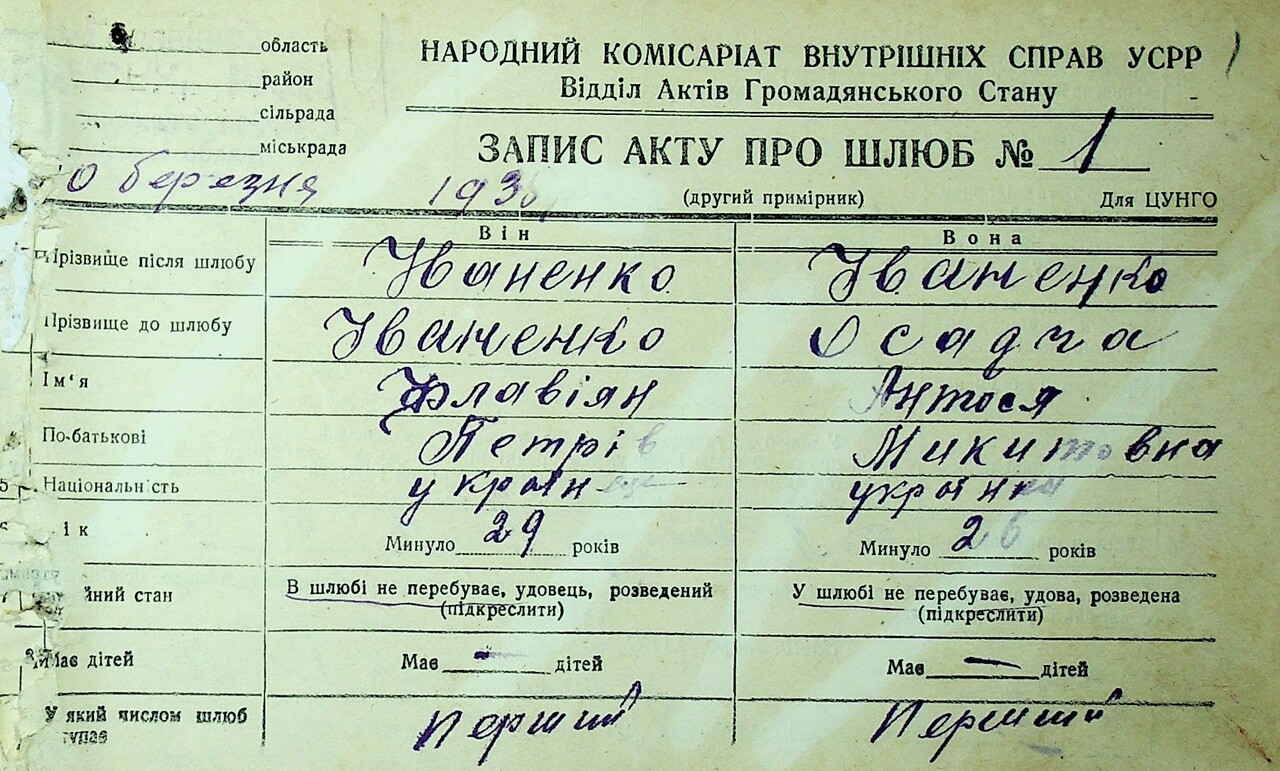 область
район
сільрада
міськрада
НАРОДНИЙ КОМІСАРІАТ ВНУТРІШНІХ СПРАВ УСРР
Відділ Актів Громадянського Стану
ЗАПИС АКТУ ПРО ШЛЮБ № 1
0 березня
(другий примірник) Для ЦУНГО
Він Вона
Прізвище після шлюбу Іваненко Іваненко
Прізвище до шлюбу Іваненко Осадча
Ім'я Флавіян Антося
По-батькові Петрів Микитовна
5 Національність українець українка
6 ік Минуло 29 років Минуло 26 років
йний стан В шлюбі не перебуває, удовець, розведений У шлюбі не перебуває, удова, розведена
(підкреслити) (підкреслити)
Має дітей Має — дітей Має — дітей
У який числом шлюб Перший Перший
тупає